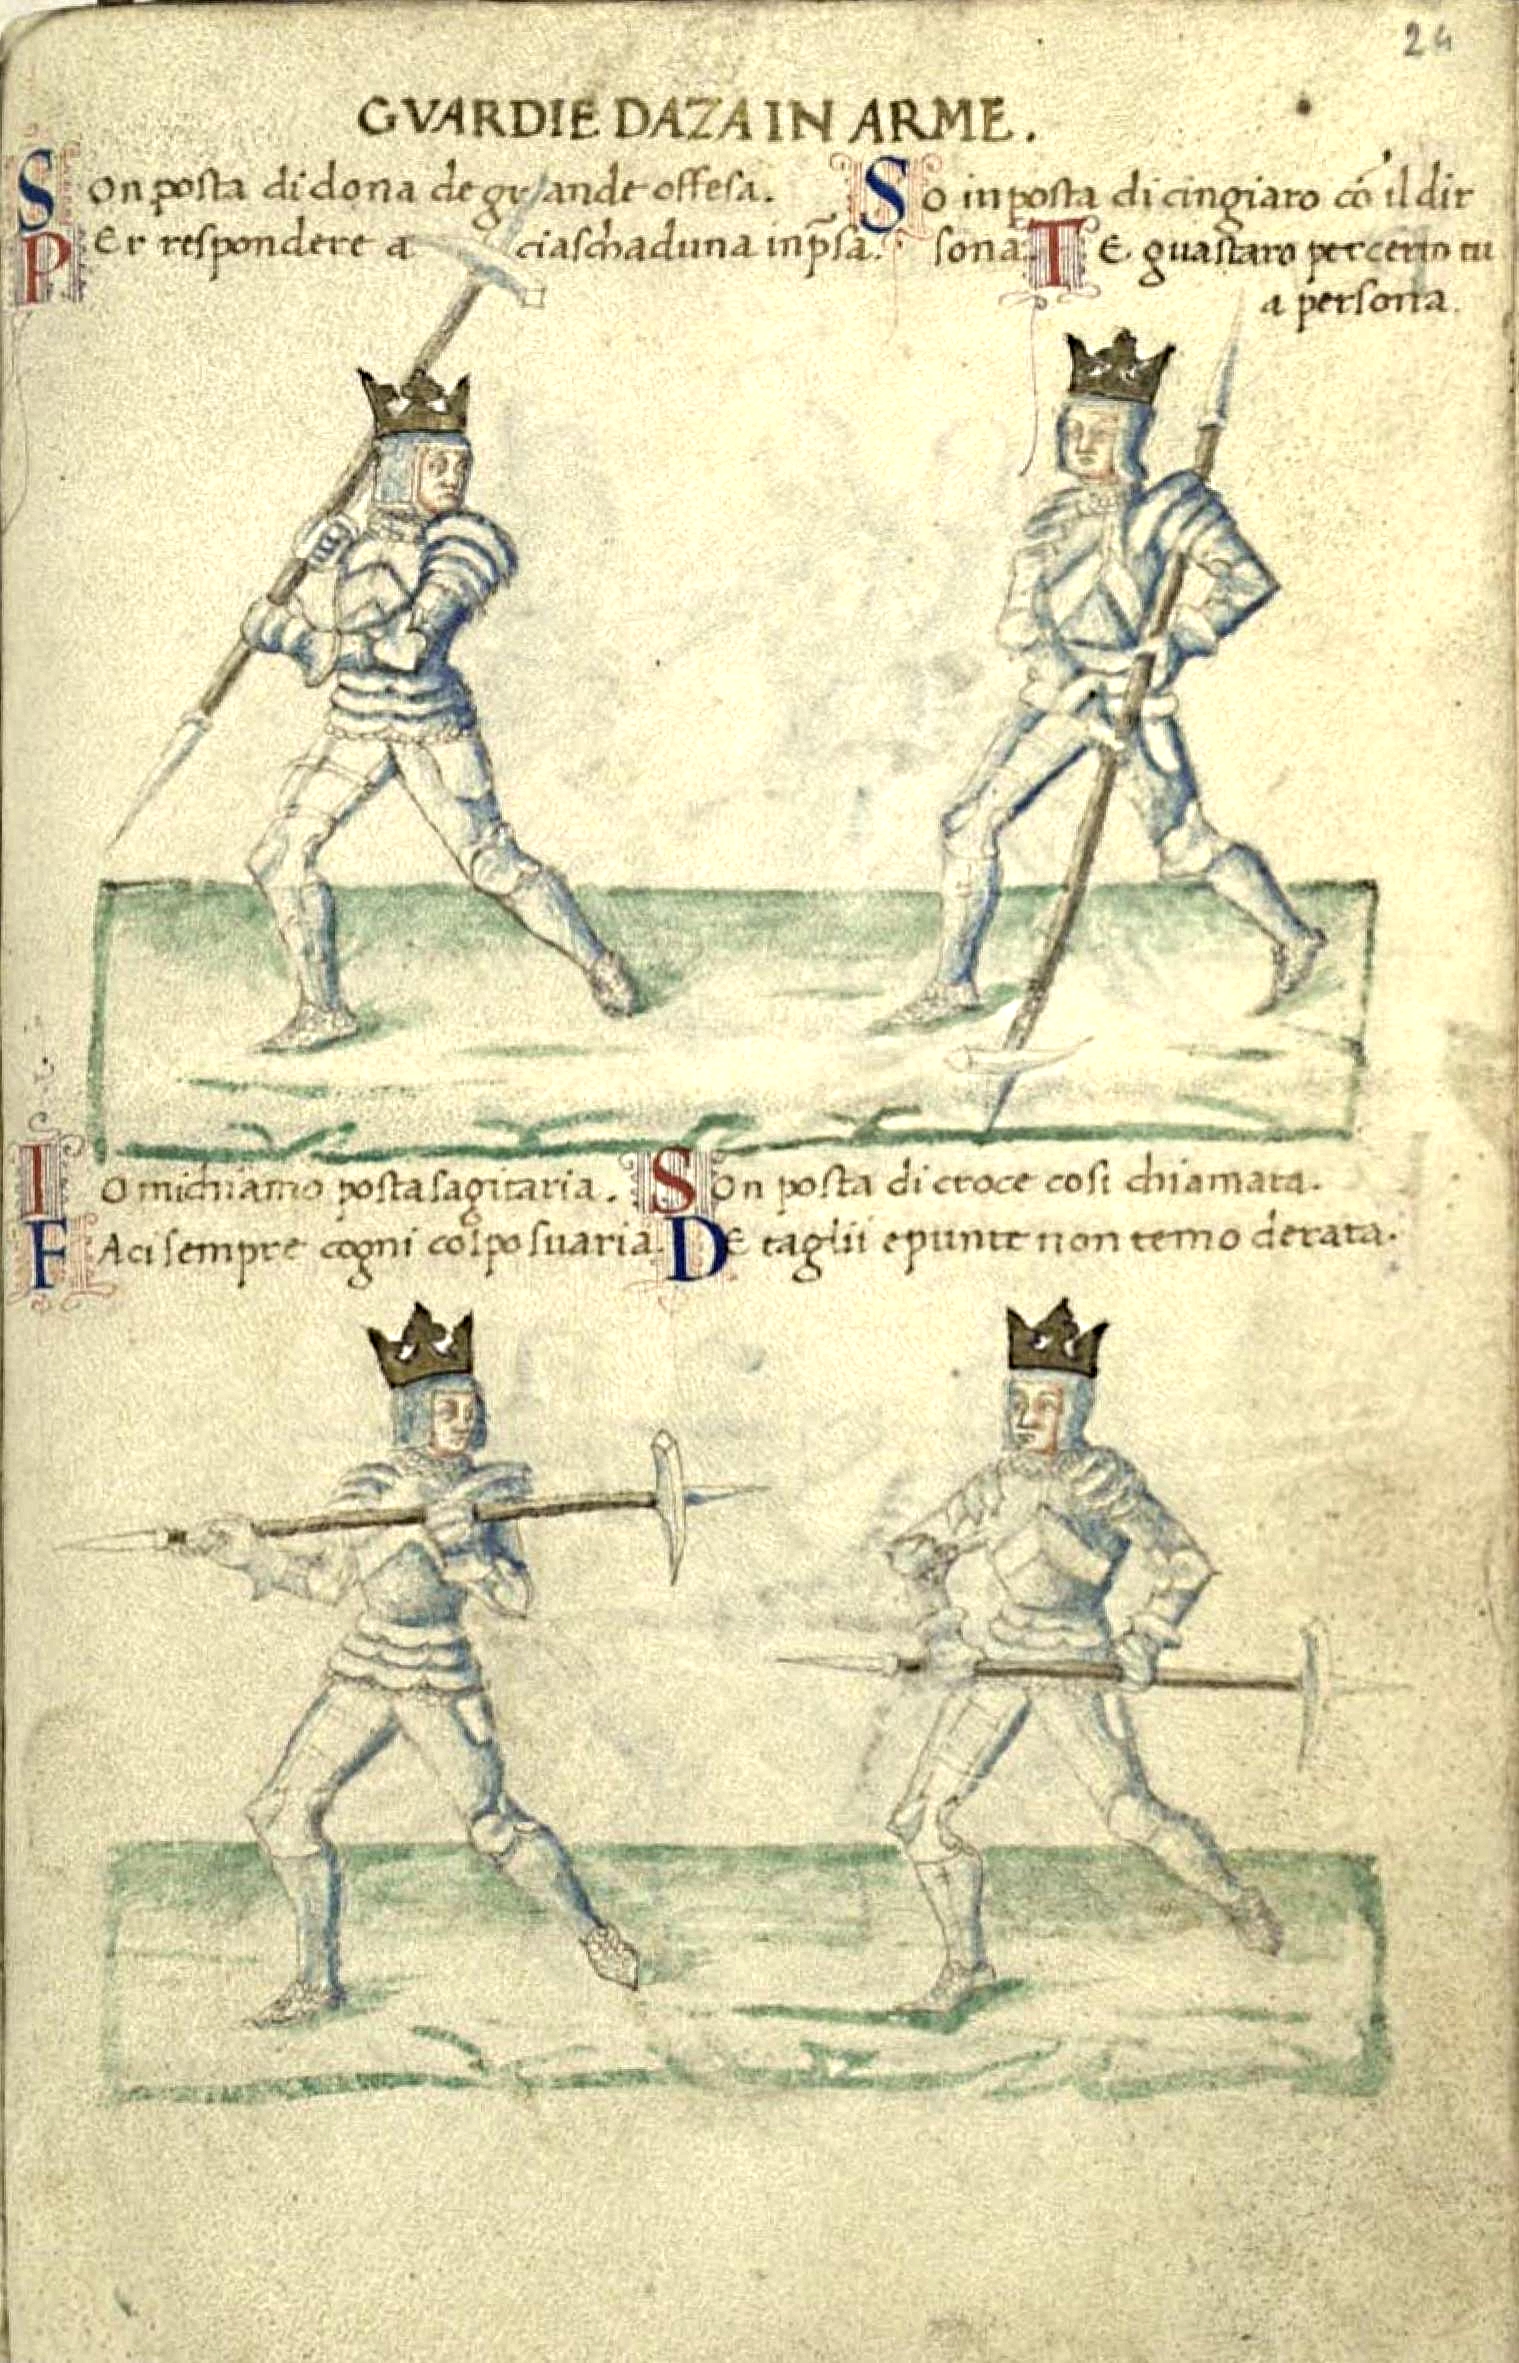 24
GVARDIE DAZA IN ARME.
Son posta di dona de grande offesa.
Per respondere a ciaschaduna inpsa.
So in posta di cingiaro co il dir
sona. Te guastaro per certo tu
a persona.
Io mi chiamo posta sagitaria.
Faci sempre cogni colpo suaria.
Son posta di croce cosi chiamata.
De taglii e punte non temo derata.